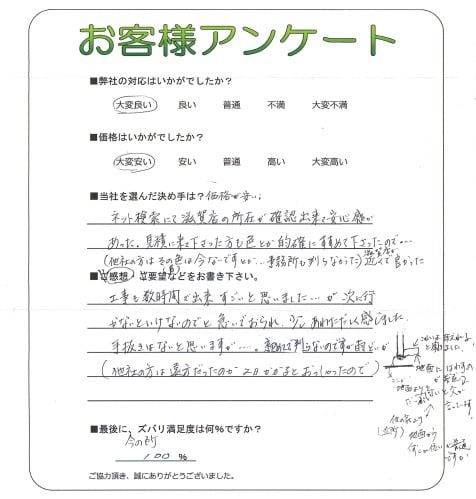 お客様アンケート
■弊社の対応はいかがでしたか？
大変良い 良い 普通 不満 大変不満
■価格はいかがでしたか？
大変安い 安い 普通 高い 大変高い
■当社を選んだ決め手は？価格が安い
ネット検索にて滋賀店の所在が確認出来て安心感が
あった。見積に来て下さった方も色とか的確にすすめて下さったので…
(他社の方はその色は今ないですとか…事務所も判らなかった)近くて良かった
■ご感想・ご要望などをお書き下さい。
工事も数時間で出来すごいと思いました…が次に行
かないといけないのでと急いでおられ、少しあわただしく感じました。
手抜きはないと思いますが……。初めてで判らないのですが
(他社の方は遠方だったのか2日かかるとおっしゃったので)
地面に
地面より
他の家より
(近所)
地面から
普通
ですか
■最後に、ズバリ満足度は何％ですか？
今の所
100 ％
ご協力頂き、誠にありがとうございました。